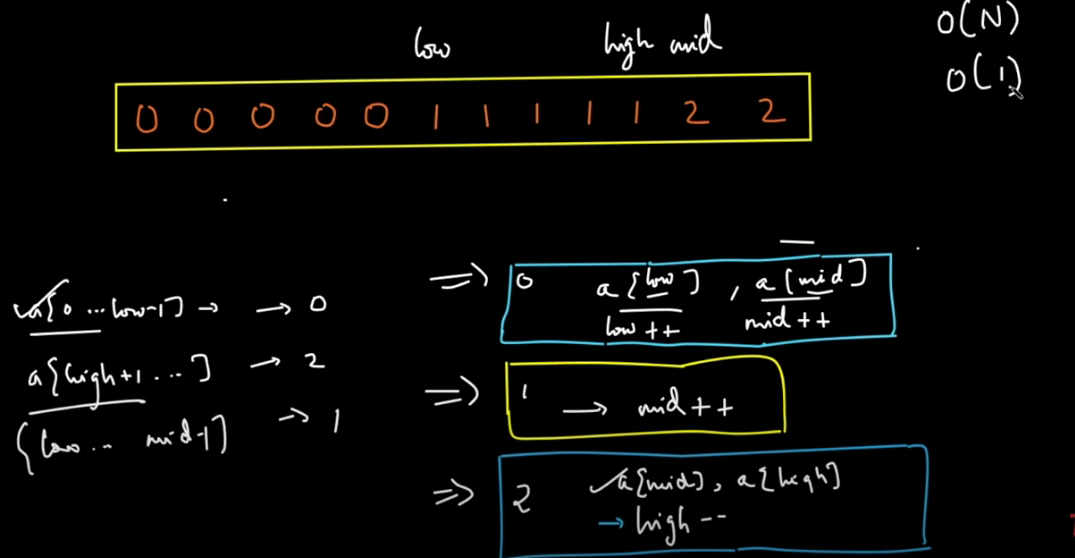 low high mid O(N)
O(1)
0 0 0 0 0 1 1 1 1 1 2 2
a[0 ... low-1] → → 0
a[high+1 ...] → 2
[low ... mid-1] → 1
⇒ 0 a[low] , a[mid]
low++ mid++
⇒ 1 → mid++
⇒ 2 a[mid], a[high]
→ high--